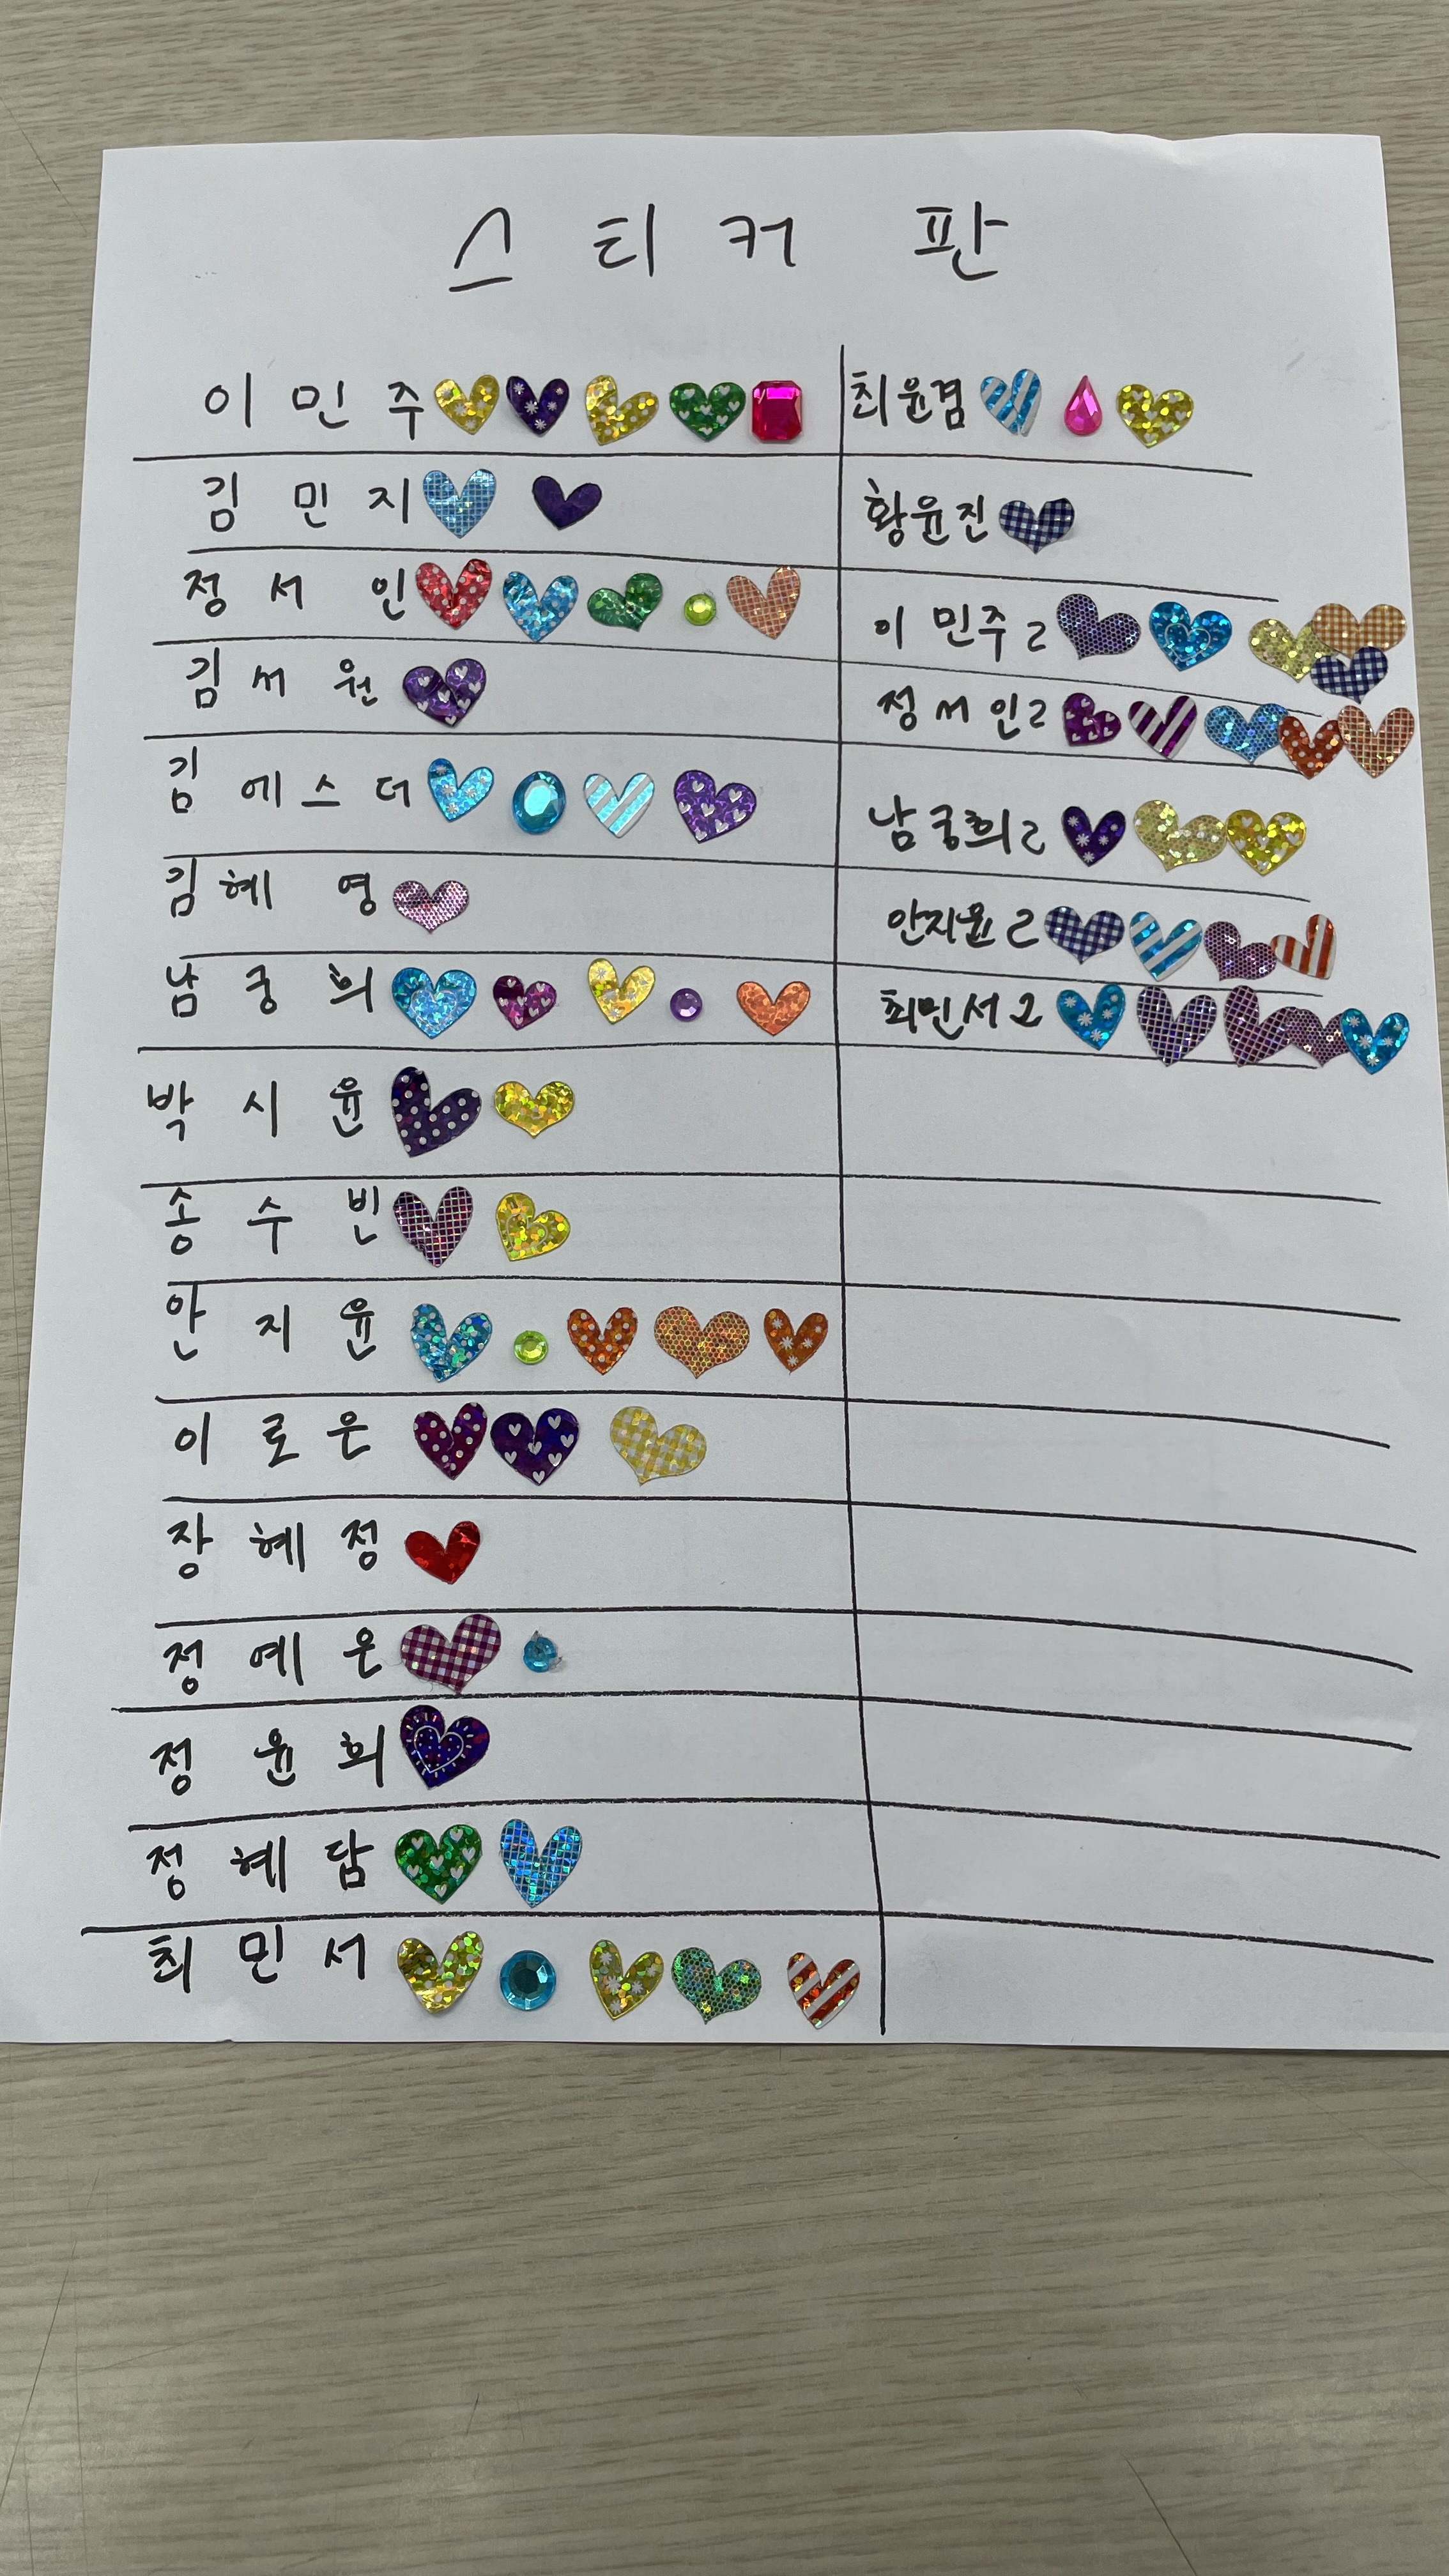 스티커 판
이민주
김민지
정서인
김서원
김에스더
김혜영
남궁희
박시윤
송수빈
안지윤
이로운
장혜정
정예은
정윤희
정혜담
최민서
최윤겸
황윤진
이민주2
정서인2
남궁희2
안지윤2
최민서2